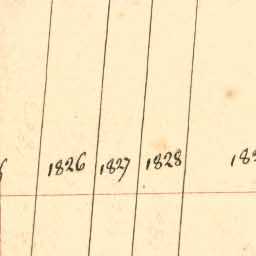 1826 1827 1828